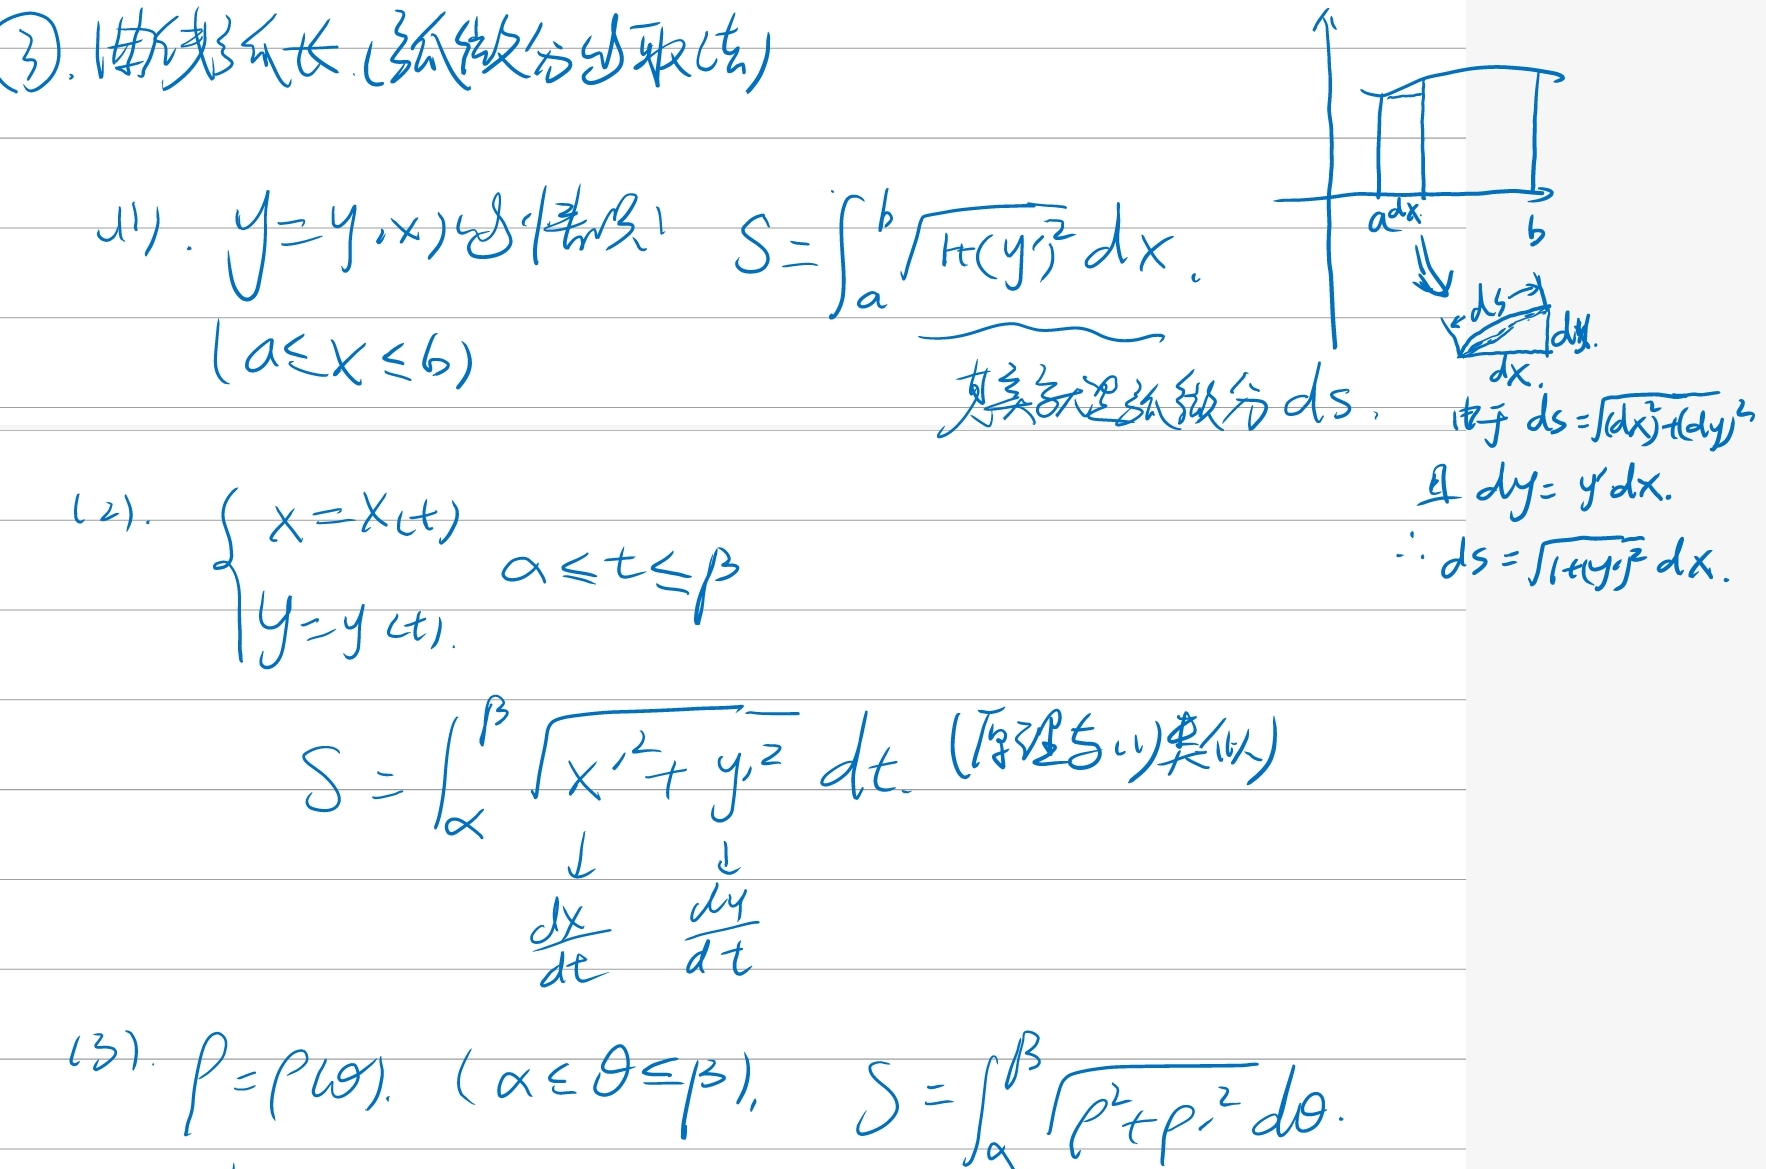 ③. 曲线弧长.(弧微分的取法)
(1). y=y(x)的情况: S=∫_a^b √(1+(y′)²) dx.
(a≤x≤b)
其实就是弧微分ds.
a dx b
ds dy.
dx.
由于 ds=√((dx)²+(dy)²)
且 dy=y′dx.
∴ ds=√(1+(y′)²) dx.
(2). { x=x(t)
α≤t≤β
y=y(t).
S=∫_α^β √(x′²+y′²) dt. (原理与(1)类似)
↓ ↓
dx/dt dy/dt
(3). ρ=ρ(θ). (α≤θ≤β), S=∫_α^β √(ρ²+ρ′²) dθ.